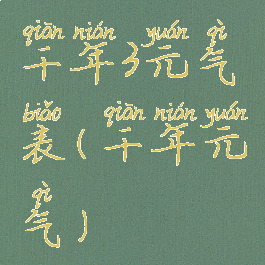 qiān nián yuán qì
千年3元气
biǎo qiān nián yuán
表(千年元
qì
气)